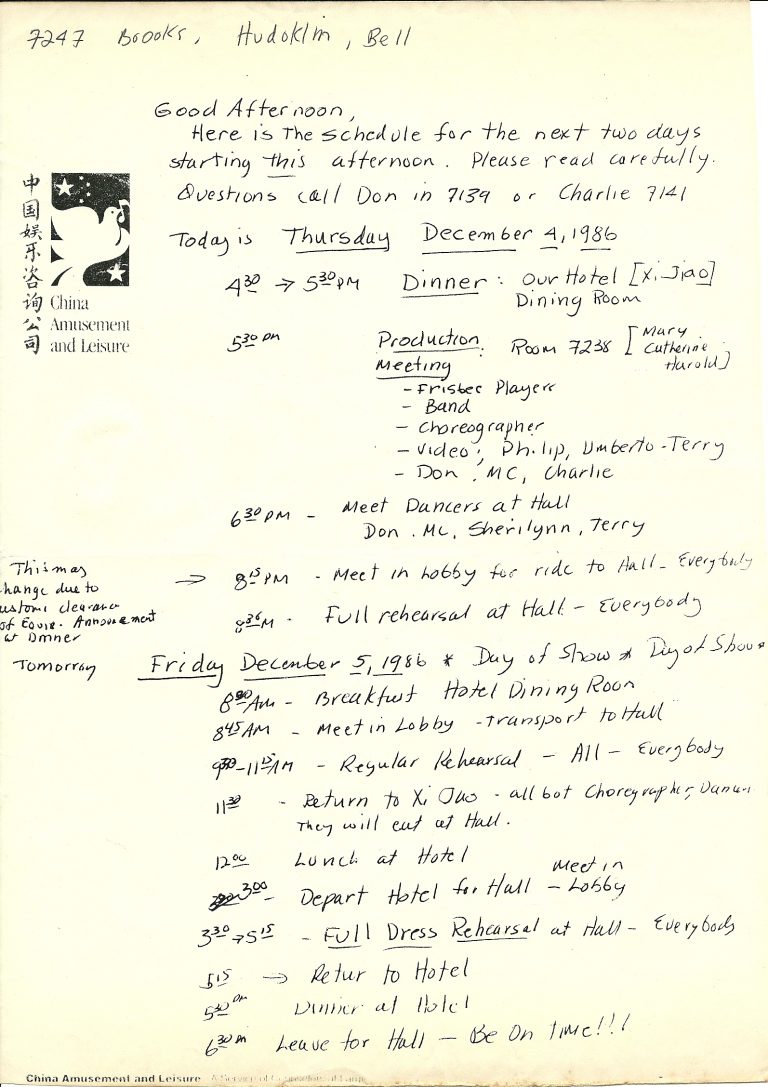 7247 Brooks, Hudoklin, Bell
Good Afternoon,
Here is The schedule for the next two days
starting this afternoon. Please read carefully.
Questions call Don in 7139 or Charlie 7141
中国娱乐咨询公司
China
Amusement
and Leisure
Today is Thursday December 4, 1986
4 30 → 5 30 PM Dinner : Our Hotel [Xi Jiao]
Dining Room
5 30 PM Production Room 7238 [Mary
Meeting Catherine
Harold]
- Frisbee Players
- Band
- Choreographer
- Video; Philip, Umberto - Terry
- Don, MC, Charlie
6 30 PM - Meet Dancers at Hall
Don. MC, Sherilynn, Terry
This may
change due to
customs clearance
of Equip. Announcement
at Dinner
→ 8 15 PM - Meet in Lobby for ride to Hall - Everybody
8 30 PM - Full rehearsal at Hall - Everybody
Tomorrow Friday December 5, 1986 * Day of Show * Day of Show *
8 00 AM - Breakfast Hotel Dining Room
8 45 AM - Meet in Lobby - Transport to Hall
9 30 - 11 15 AM - Regular Rehearsal - All - Everybody
11 30 - Return to Xi Jiao - all but Choregrapher,
They will eat at Hall.
12 00 Lunch at Hotel
3 00 - Depart Hotel for Hall - Meet in Lobby
3 30 → 5 15 - Full Dress Rehearsal at Hall - Everybody
5 15 → Retur to Hotel
5 30 PM Dinner at Hotel
6 30 PM Leave for Hall - Be On Time!!!
China Amusement and Leisure A Service of